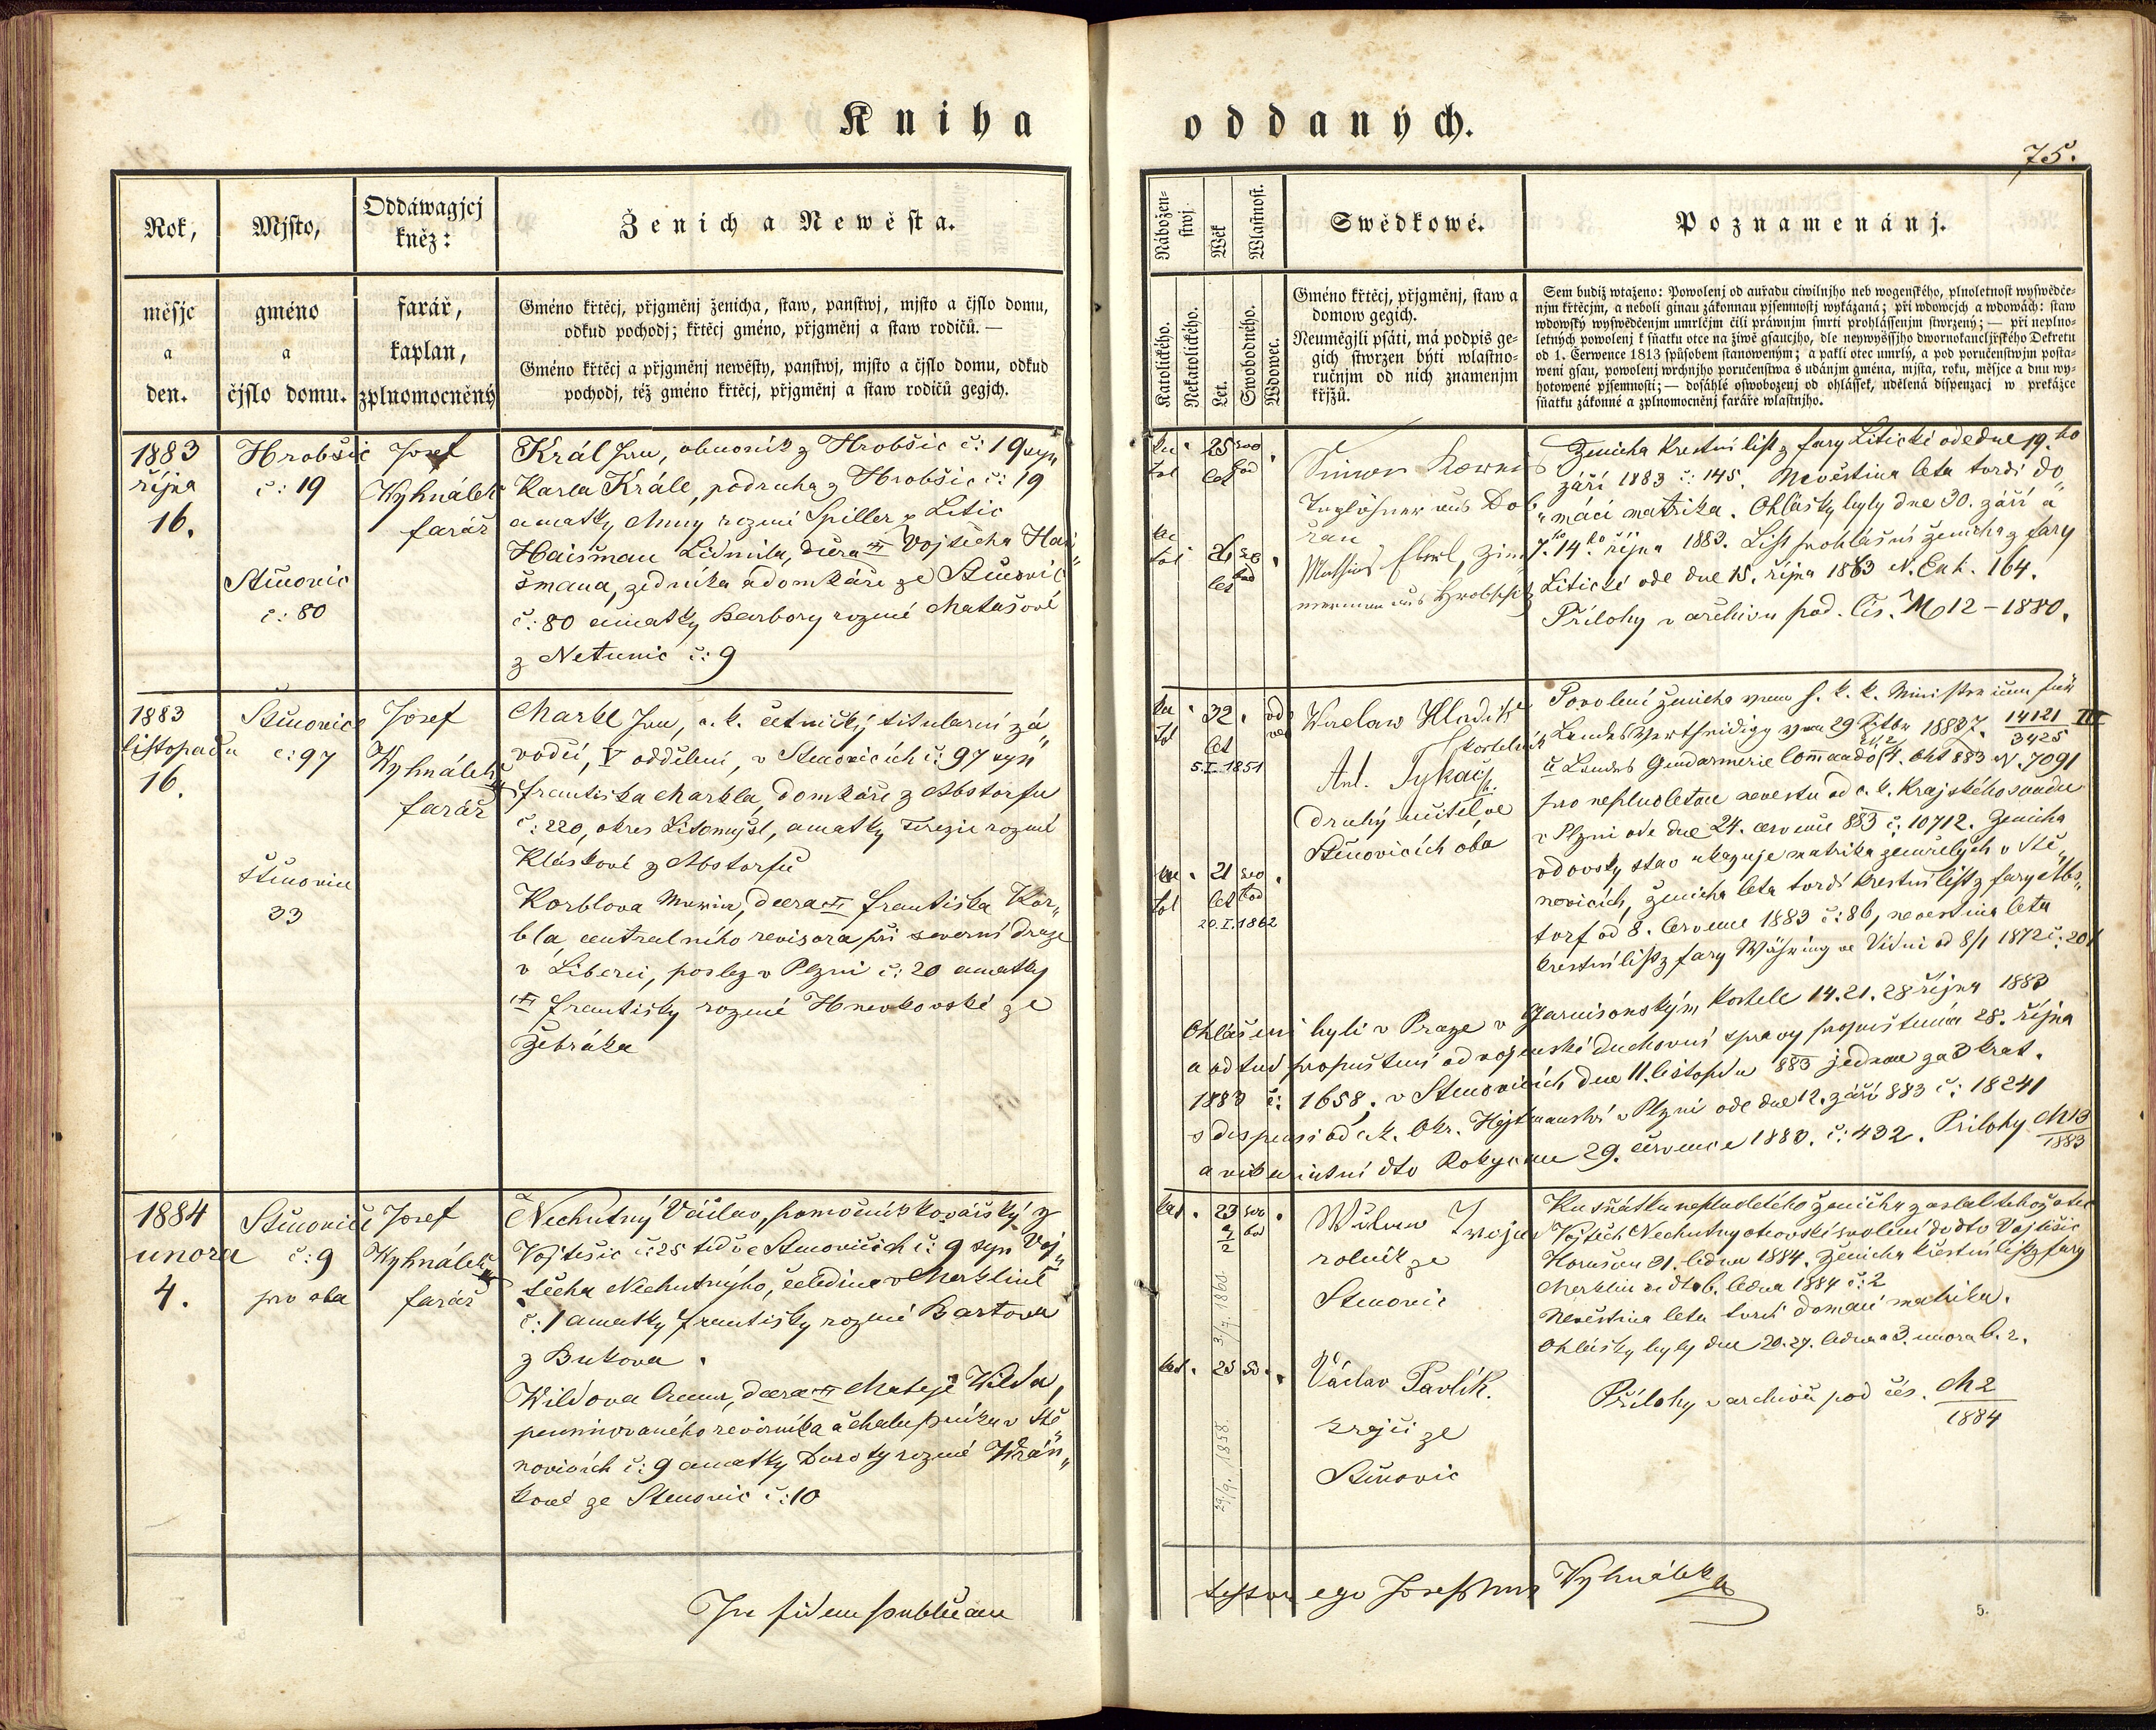 Kniha oddaných.
75.
Rok,
měsjc
a
den.
Mjsto,
gméno
a
čjslo domu.
Oddáwagjcj
kněz:
farář,
kaplan,
zplnomocněný
Ženich a Newěsta.
Gméno křtěcj, přjgměnj ženicha, staw, panstwj, mjsto a čjslo domu,
odkud pochodj; křtěcj gméno, přjgměnj a staw rodičů. —
Gméno křtěcj a přjgměnj newěsty, panstwj, mjsto a čjslo domu, odkud
pochodj, též gméno křtěcj, přjgměnj a staw rodičů gegjch.
Nábožen-
stwj.
Katolického.
Nekatolického.
Wěk
Let.
Wlastnost.
Swobodného.
Wdowec.
Swědkowé.
Gméno křtěcj, přjgměnj, staw a
domow gegich.
Neuměgjli psáti, má podpis ge-
gich stwrzen býti wlastno-
ručnjm od nich znamenjm
křjžů.
Poznamenánj.
Sem budiž wtaženo: Powolenj od auřadu ciwilnjho neb wogenského, plnoletnost wyswědče-
njm křtěcjm, a neboli ginau zákonnau pjsemnostj wykázaná; při wdowcjch a wdowách: staw
wdowský wyswědčenjm umrlčjm čili práwnjm smrti prohlássenjm stwrzený; — při neplno-
letných powolenj k sňatku otce na žiwě gsaucjho, dle neywyssjho dwornokancljřského Dekretu
od 1. Čerwence 1813 spůsobem stanoweným; a pakli otec umrlý, a pod poručenstwjm posta-
weni gsau, powolenj wrchnjho poručenstwa s udánjm gména, mjsta, roku, měsjce a dnu wy-
hotowené pjsemnosti; — dosáhlé oswobozenj od ohlášek, udělená dispenzacj w prekážce
sňatku zákonné a zplnomocněnj faráře wlastnjho.
1883
října
16.
Hrobšic
č: 19
Stěnovic
č: 80
Josef
Wyhnálek
farář
Král Jan, obuvník z Hrobšic č: 19 syn
Karla Krále, podruha z Hrobšic č: 19
a matky Anny rozené Spiller z Litic
Haišman Ludmila, dcera Vojtěcha Hai„
šmana, zedníka a domkáře ze Stěnovic
č: 80 a matky Barbory rozené Matašové
z Netunic č: 9
ka
tol
25
let
svo
bod
ka
tol
26
let
svo
bod
Simon
Taglöhner aus Dob
řan
Mathias Eberl, Zim
merman aus Hrobschitz
Ženicha křestní list z fary Litické ode dne 19.ho
září 1883 č: 145. Nevěstina leta tvrdí do„
„mácí matrika. Ohlášky byly dne 30. září a
7.ho 14.ho října 1883. List prohlášní ženicha z fary
Litické ode dne 15. října 1883 N. Exh. 164.
Přílohy v archivu pod. čis. M 12 – 1880.
1883
listopadu
16.
Stěnovice
č: 97
Štěnovice
33
Josef
Wyhnálek
farář
Markl Jan, c. k. četnický titularní zá„
vodčí, V oddělení, v Stěnovicích č: 97 syn
Františka Markla, domkáře z Abstorfu
č: 220, okres Litomyšl, a matky Terezie rozené
Kláskové z Abstorfu
Korblova Maria, dcera Františka Kor„
bla, centralního revisora při severní draze
v Liberci, posléz v Plzni č: 20 a matky
Františky rozené Hnevkovské ze
Žebráka
ka
tol
32
let
5.I.1851
vd
ove
ka
tol
21
let
svo
bod
20.I.1862
Waclaw Hladík
kostelník
Ant. Tykač
druhý učitel ve
Stěnovicích oba
Povolení ženicha vom h. k. k. Ministerium für
Landesvertheidigung vom 29 1883 14121/3425 III
Landes Gendarmerie Commando 4. Okt 883 N. 7091
pro neplnoletou nevěstu od c. k. Krajského soudu
v Plzni ode dne 24. července 883 č: 10712. Ženicha
vdovský stav ukazuje matrika zemřelých v Stě„
novicích, ženicha leta tvrdí křestní list z fary Abs„
torf od 8. července 1883 č: 86, nevěstina leta
křestní list z fary Währing ve Vídni od 8/1 1872 č: 20
Ohlášeni byli v Praze v Garnisonským kostele 14. 21. 28 října 1883
a odtud propuštění od vojenské duchovní správy propuštěna 28. října
1883 č: 1658. v Stěnovicích dne 11. listopadu 883 jednou za 3 krát.
s dispensí od c. k. Okr. Hejtmanství v Plzni ode dne 12. září 883 č: 18241
a vikariatní dto Rokycan 29. července 1883. č: 432. Přílohy M13/1883
1884
unora
4.
Stěnovice
č: 9
pro oba
Josef
Wyhnálek
farář
Nechutný Václav, pomocník kovářský z
Vojtěšic č: 25 teď ve Stěnovicích č: 9 syn Voj„
těcha Nechutnýho, čeledína v Merklíně
č: 1 a matky Františky rozené Bartova
z Bukova.
Wildova Anna, dcera Matěje Wilda,
pensinovaného revírníka a chalupníka v Stě„
novicích č: 9 a matky Doroty rozené Wrán„
kové ze Stěnovic č: 10
kat.
23
7/2
svo
bo
3/7. 1860.
kat.
25
sv.
29/9. 1858.
rolník ze
Stěnovic
Václav Pavlík.
krejčí ze
Stěnovic
Ku sňátku neplnoletého ženicha zaslal tehož otec
Vojtěch Nechutný otcovské svolení ddto Vojtěšic
Horušan 31. ledna 1884. Ženicha křestní list z fary
Merklín ddto 6. ledna 1884 č: 2
Nevěstina leta tvrdí domací matrika.
Ohlášky byly dne 20. 27. ledna a 3. unora b. r.
Přílohy v archivu pod čís. M 2/1884
In fidem publicam
testor ego Josephus Wyhnálek
5.